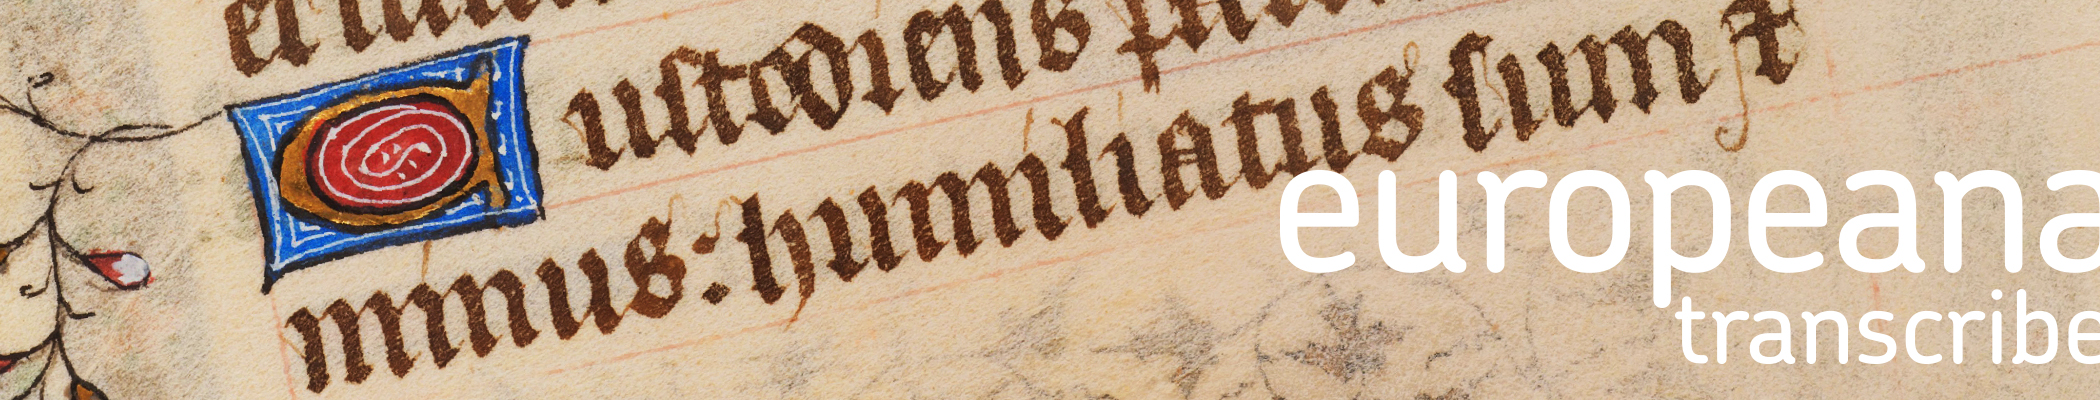 et
Custodiens
minus: humiliatus sum
europeana
transcribe